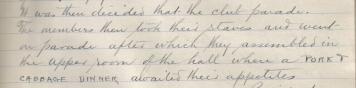 It was then decided that the club parade.
The members then took their staves and went
on parade after which they assembled in
the upper room of the hall where a PORK &
CABBAGE DINNER awaited their appetites